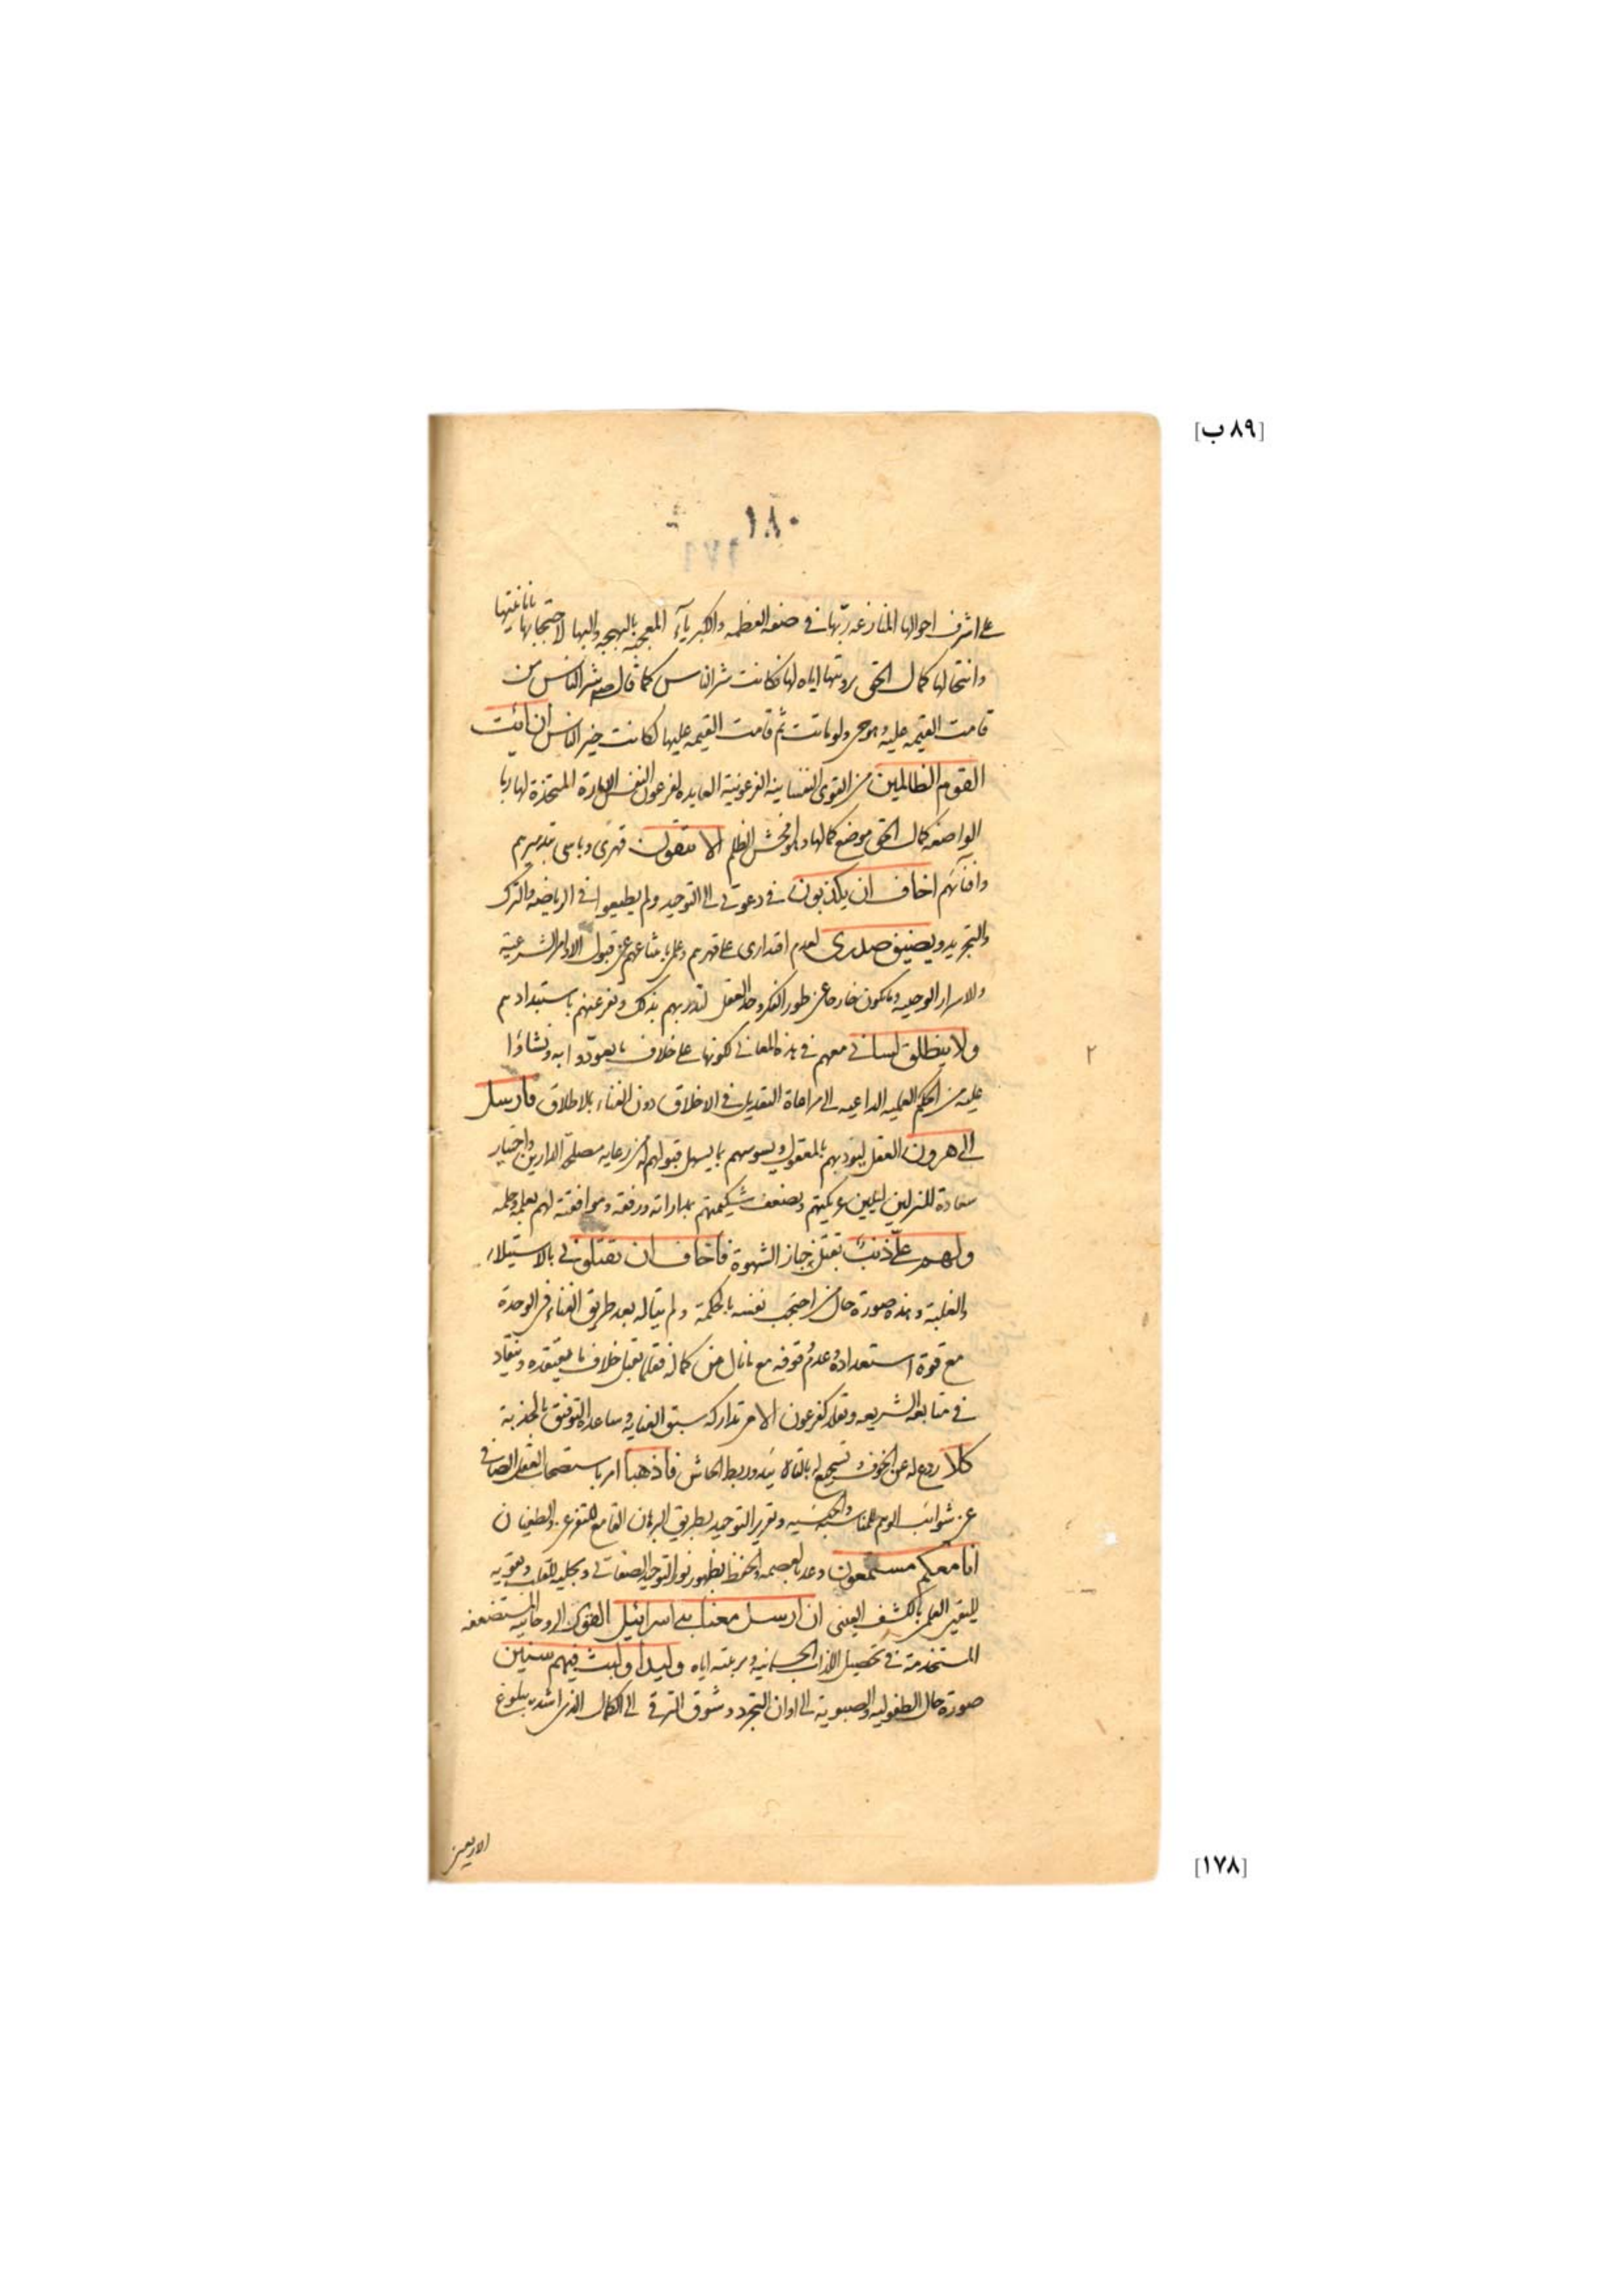 [٨٩ ب]
١٨٠
على اشرف احوالها المنازعة ربّها في صفة العظمة والكبرياء المعجبة بالبهجة والبهاء لاحتجابها بانائيتها
وانتحالها كمال الحق برويتها اياه لها فكانت شر الناس كما قال صلعم شر الناس من
قامت القيمة عليه وهو حي ولو ماتت ثم قامت القيمة عليها لكانت خير الناس ان ائت
القوم الظالمين من القوى النفسانية الفرعونية العابدة لفرعون النفس الامارة المتخذة لها ربا
الواضعة كمال الحق موضع كمالها وهو افحش الظلم الا يتقون قهري وباسي بتدميرهم
وافنائهم اخاف ان يكذبون في دعوتي الى التوحيد ولم يطيعوا في الرياضة والترك
والتجريد ويضيق صدري لعدم اقتداري على قهرهم وعلمي بامتناعهم عن قبول الاوامر الشرعية
والاسرار الوحيية وما يكون خارجا عن طور الفكر وحد العقل لتدربهم بذلك وتفرعنهم باستبدادهم
ولا ينطلق لساني معهم في هذه المعاني لكونها على خلاف ما تعوّدوا به ونشاؤا
عليه من الحكم العملية الداعية الى مراعاة التعديل في الاخلاق دون الفناء بالاطلاق فارسل
الى هرون العقل ليؤدبهم بالمعقول ويسوسهم بما يسهل قبولهم له من رعاية مصلحة الدارين واختيار
سعادة المنزلين ليلين عريكتهم ويضعف شكيمتهم بمداراته ورفقه وموافقته لهم بعلمه وحلمه
ولهم علىّ ذنب بقتلي جباز الشهوة فاخاف ان يقتلون بالاستيلاء
والغلبة وهذه صورة حال من احتجب نفسه بالحكمة ولم يتاله بعد طريق الفناء في الوحدة
مع قوة استعداده وعدم وقوفه مع ما نال من كماله فقلما يقبل خلاف ما يعتقده وينقاد
في متابعة الشريعة وتقلد كفرعون الا من تداركه سبق العناية وساعده التوفيق بالجذبة
كلا ردع له عن الخوف وتشجيع له بالتاييد وربط الجاش فاذهبا امر باستصحاب العقل الصافي
عن شوائب الوهم للمناسبة والجنسية وتقرير التوحيد بطريق البرهان القامع للتفرعن والطغيان
انا معكم مستمعون وعد بالعصمة والحفظ بظهور نور التوحيد الصفاتي وتجليه للقلب وتقويه
لليقين العلمي بالكشف العيني ان ارسل معنا بني اسرائيل القوى الروحانية المستضعفة
المستخدمة في تحصيل اللذات الجسمانية وتربيته اياه وليدا ولبث فيهم سنين
صورة حال الطفولية والصبوية الى اوان التجرد وشوق الترقي الى الكمال الذي اشده بلوغ
٢
الاربعين
[١٧٨]